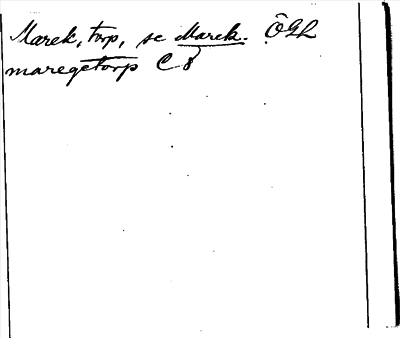 Marek, torp, se Marek. ÖGL
maregetorp C 8